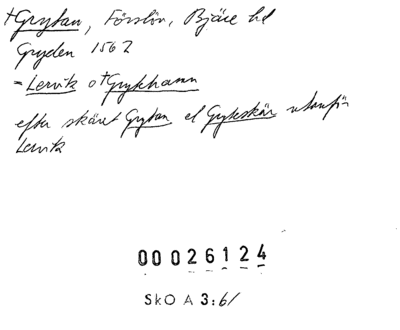 †Grytan, Förslöv, Bjäre hd
Gryden 1562
= Lervik o †Grytehamn
efter skäret Grytan el Gryteskär utanför
Lervik
00026124
SkO A 3:61